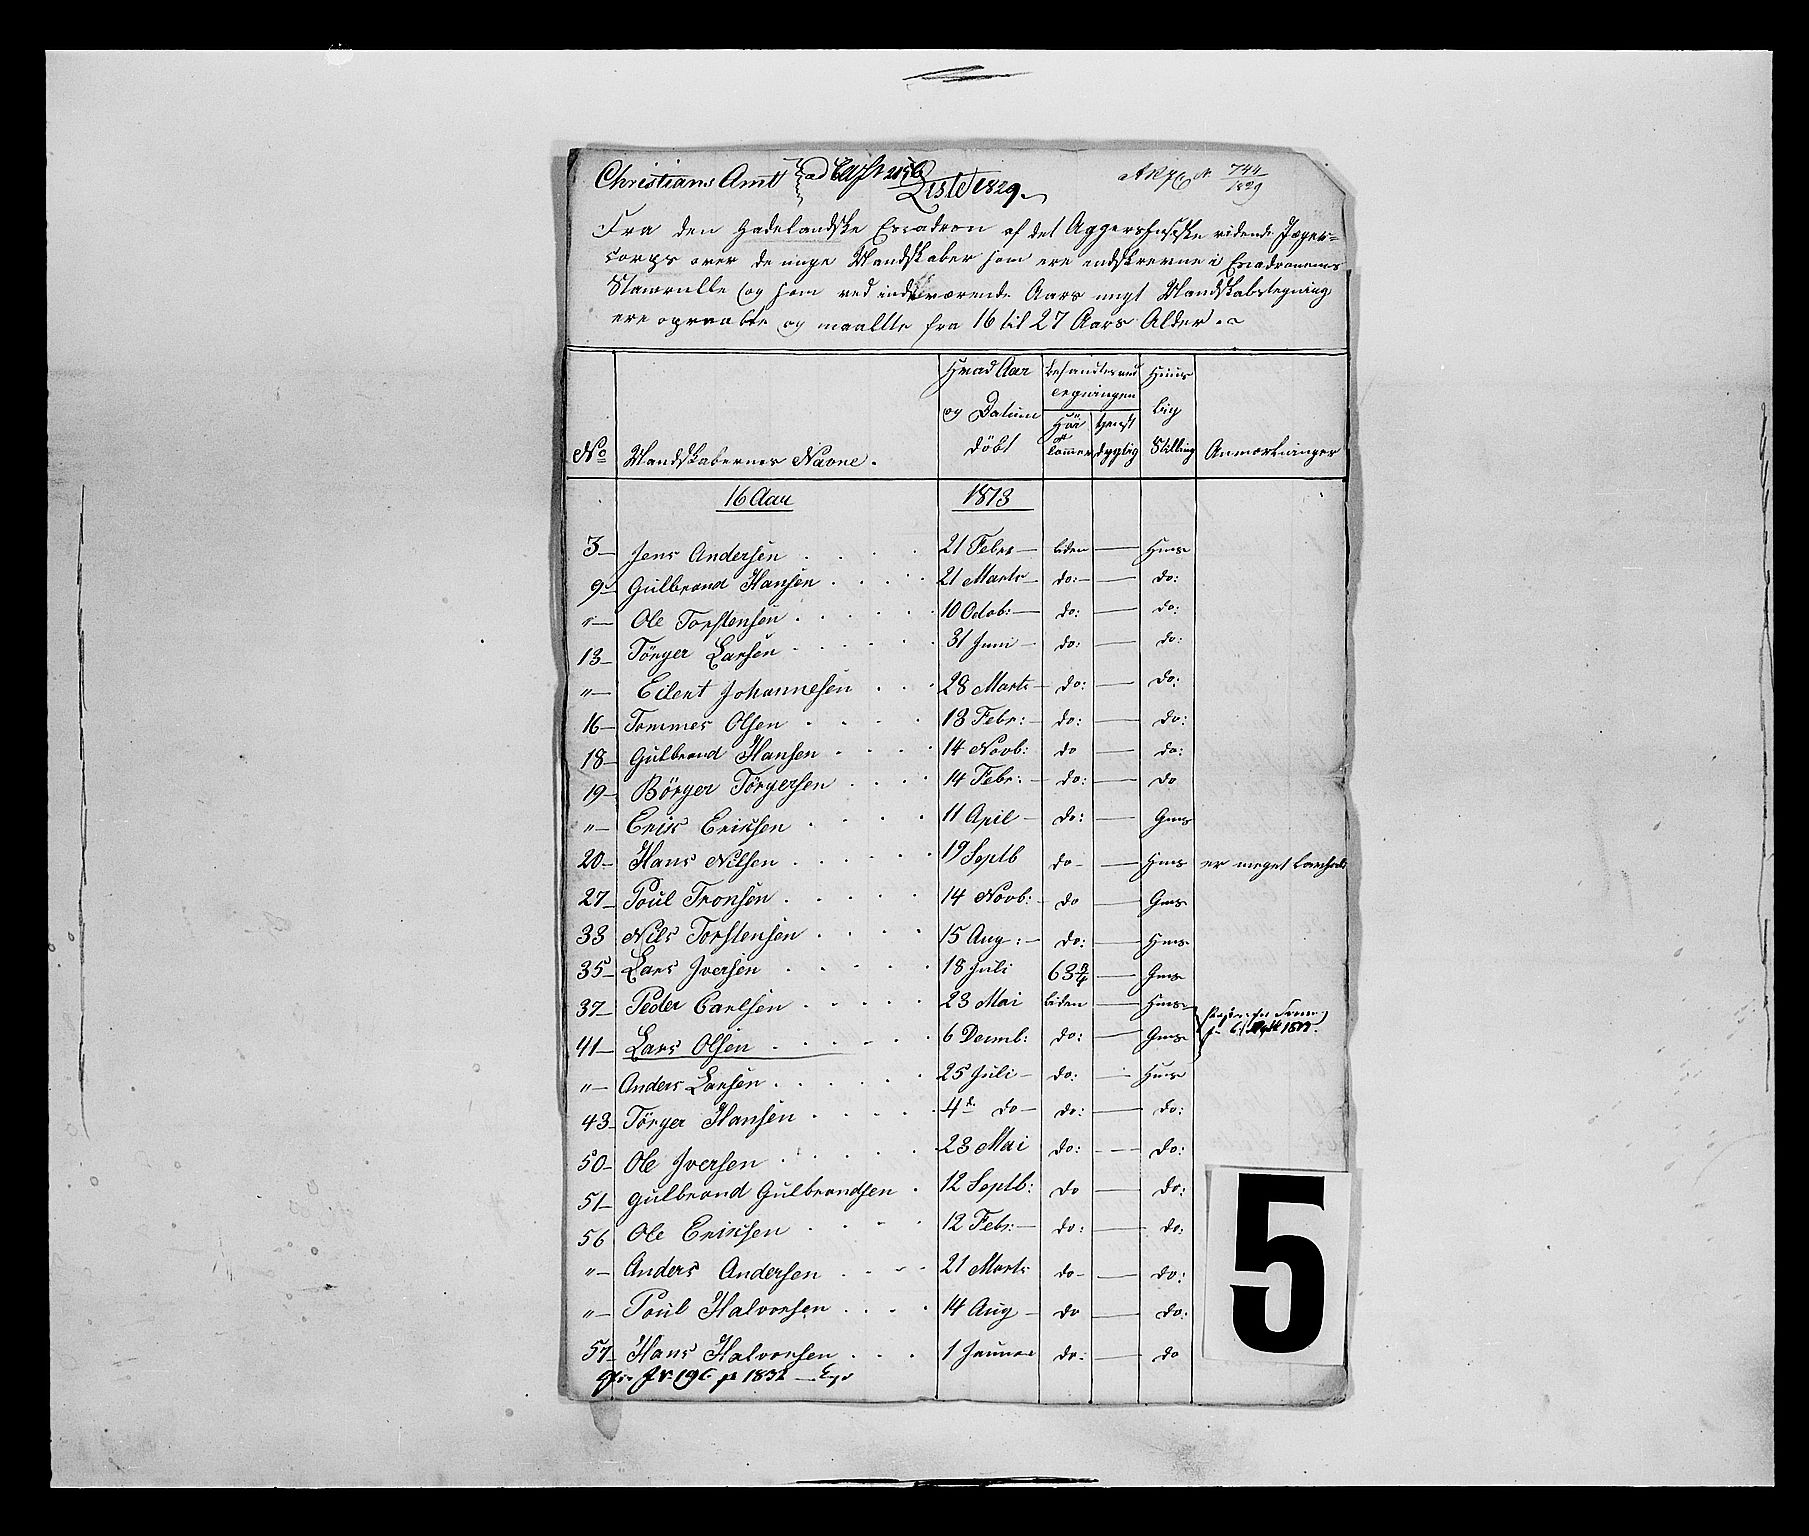 Christians Amt ad
Liste 1829
744
1829
Fra den Hadelandske Escadron af det Aggershusiske ridende Jæger=
corps over de unge Mandskaber som ere indskrevne i Escadronens
Stamrulle og som ved indeværende Aars ungt Mandskabstegning
ere opraabte og maalte fra 16 til 27 Aars Alder.
No
Mandskabernes Navne.
Hvad Aar og Datum döbt
Höi
Stilling
Anmærkninger
16 Aar 1813
3 Jens Andersen 21 Febr liden Huus
9 Gulbrand Hansen 21 Marts do: do:
" Ole Torstensen 10 Octob: do: do:
13 Törger Larsen 31 Juni do: do:
" Eilert Johannesen 28 Marts do: do:
16 Tommes Olsen 18 Febr: do: do:
18 Gulbrand Hansen 14 Novb: do do:
19 Börger Törgersen 14 Febr: do: do
" Erik Eriksen 11 April do: Gms
20 Hans Nilsen 19 Septb do Hms er meget
27 Poul Tronsen 14 Novb: do Gms
33 Nils Torstensen 15 Aug: do: Hms
35 Lars Iversen 18 Juli 63 3/4 Gms
37 Peder Carlsen 23 Mai liden Hms
41 Lars Olsen 6 Decmb: do: Gms
" Anders Larsen 25 Juli do: Hms
43 Törger Hansen 4de do do: do:
50 Ole Iversen 23 Mai do: do:
51 Gulbrand Gulbrandsen 12 Septb: do do:
56 Ole Eriksen 12 Febr: do: do:
" Anders Andersen 21 Marts do do:
" Poul Halvorsen 14 Aug do do:
57 Hans Halvorsen 1 Januar do: do
196 1832
5